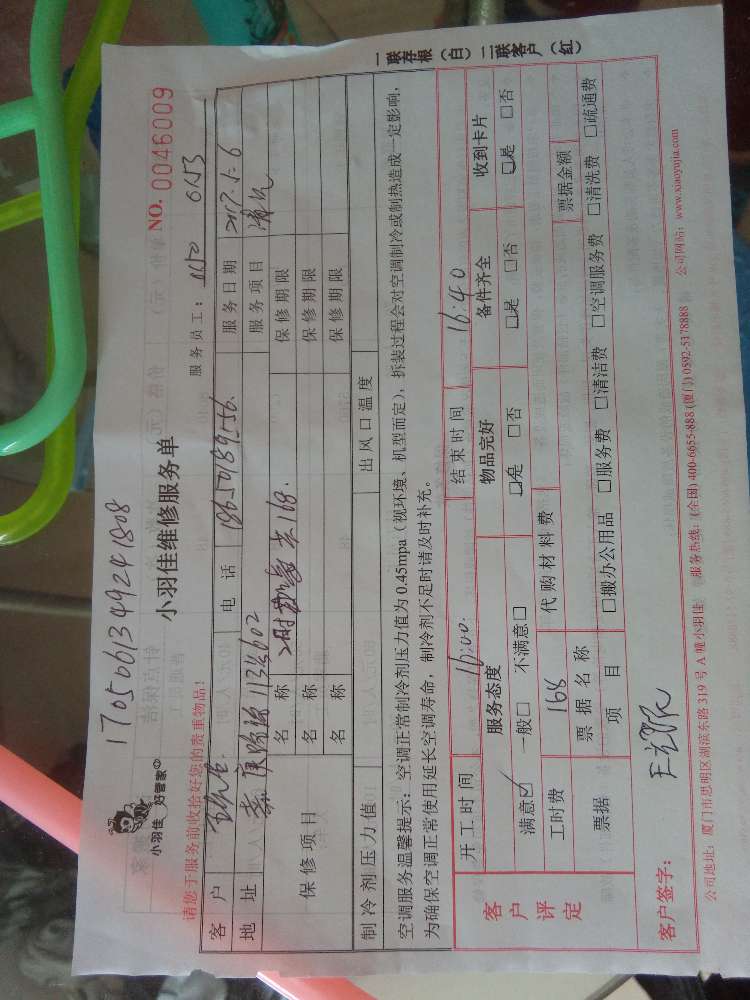 1705061349241808
小羽佳 好管家
小羽佳维修服务单
NO. 0046009
请您于服务前收拾好您的贵重物品!
服务员工: 0153
客户 电话 18650189556. 服务日期 2017.7.6
地址 113号602 服务项目 清洗
保修项目 名称 保修期限
名称 保修期限
名称 保修期限
制冷剂压力值 出风口温度
空调服务温馨提示: 空调正常制冷剂压力值为 0.45mpa (视环境、机型而定), 拆装过程会对空调制冷或制热造成一定影响,
为确保空调正常使用延长空调寿命, 制冷剂不足时请及时补充。
客户评定 开工时间 16:00. 结束时间 16:40
服务态度 物品完好 备件齐全 收到卡片
满意☑ 一般□ 不满意□ □是 □否 □是 □否 □是 □否
工时费 168 代购材料费
票据 票据名称 票据金额
项目 □搬办公用品 □服务费 □清洁费 □空调服务费 □清洗费 □疏通费
客户签字:
公司地址: 厦门市思明区湖滨东路 319 号 A 幢小羽佳 服务热线: (全国) 400-6655-888 (厦门) 0592-5178888 公司网站: www.xiaoyujia.com
一联存根 (白) 二联客户 (红)